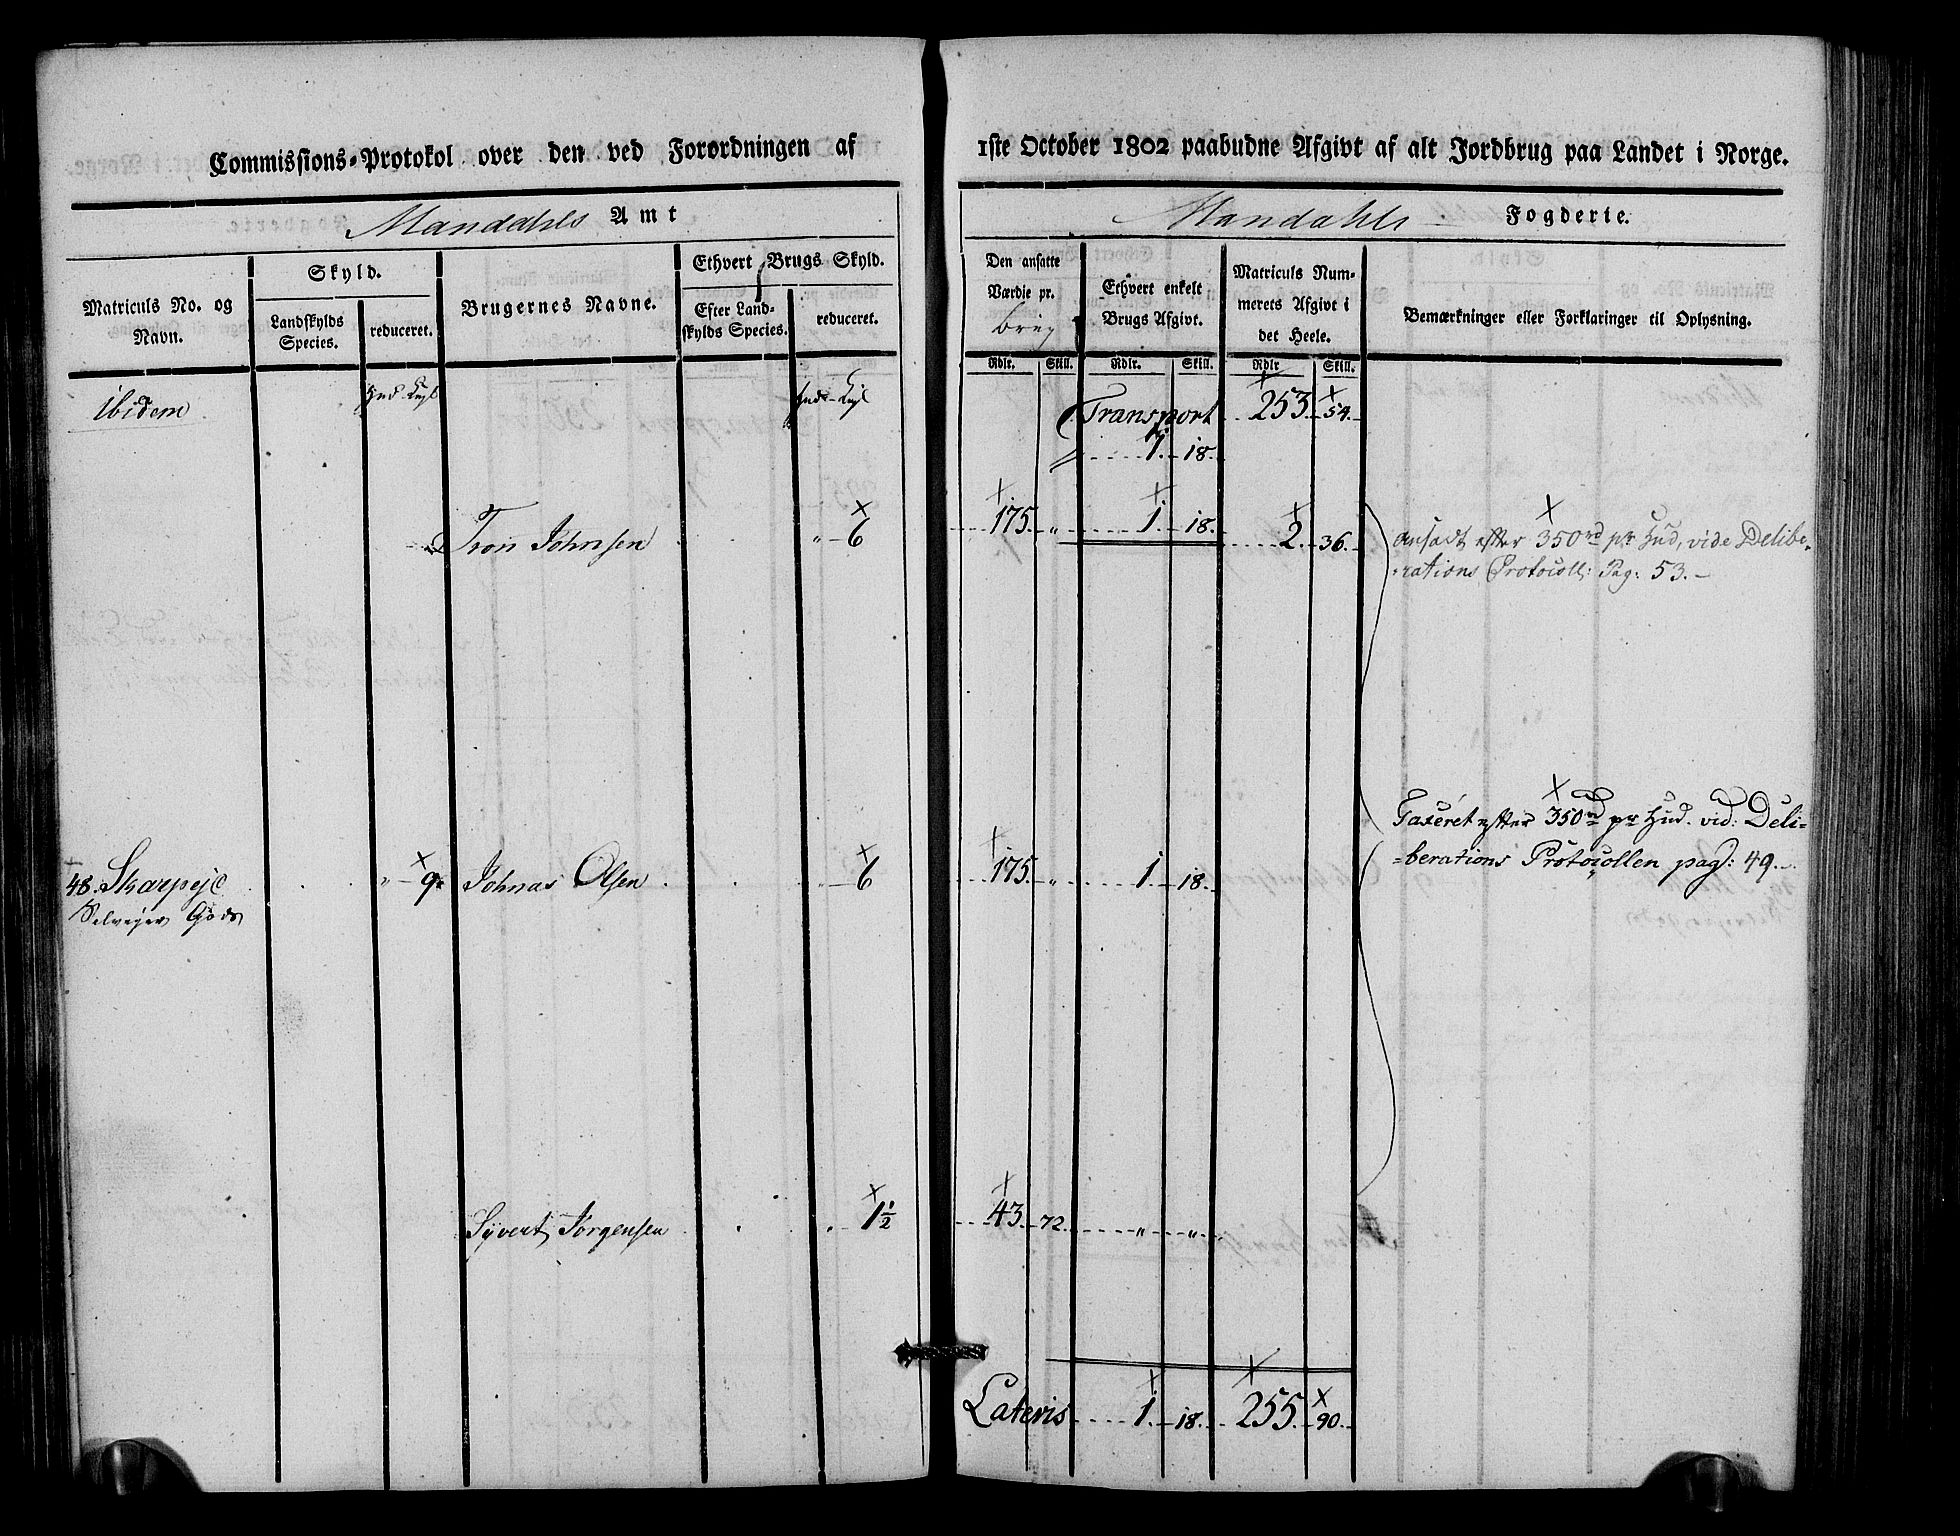 Commissions-Protokol over den ved Forordningen af 1ste October 1802 paabudne Afgivt af alt Jordbrug paa Landet i Norge.
Mandahls Amt
Mandahls Fogderie.
Matriculs No. og Navn.
Skyld.
Landskylds Species.
reduceret.
Brugernes Navne.
Ethvert Brugs Skyld.
Efter Landskylds Species.
reduceret.
Den ansatte Værdie pr. brug
Ethvert enkelt Brugs Afgivt.
Matriculs Nummerets Afgivt i det Heele.
Bemærkninger eller Forklaringer til Oplysning.
Rdlr. Skill. Rdlr. Skill. Rdlr Skill.
Ibidem
Transport 253. 54.
1. 18.
Tron Johnsen " 6 175. " 1. 18. 2. 36.
ansadt efter 350rd pr Hud, vide Delibe-
rations Protocoll: Pag: 53.
48. Skarpeje " 9 Johnas Olsen " 6 175. " 1. 18.
Selvejer Gods
Taxeret efter 350rd pr Hud. vid. Deli=
=berations Protocollen pag: 49.
Syvert Jørgensen " 1 1/2 43. 72. " "
Lateris 1. 18. 255. 90.